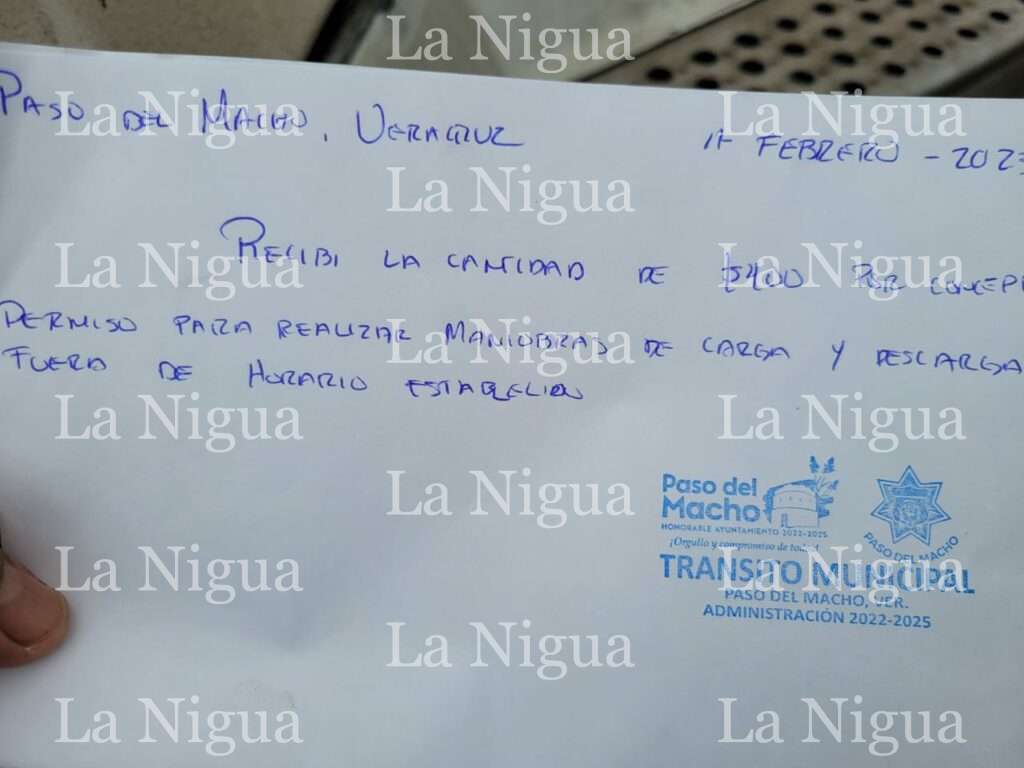 La Nigua
PASO DEL MACHO, VERACRUZ
FEBRERO - 2023
La Nigua La Nigua
La Nigua
RECIBI LA CANTIDAD DE $400 POR CONCEPT
La Nigua La Nigua
PERMISO PARA REALIZAR MANIOBRAS DE CARGA Y DESCARGA
La Nigua
FUERA DE HORARIO
La Nigua La Nigua
La Nigua
Paso del
Macho
HONORABLE AYUNTAMIENTO 2022-2025
¡Orgullo y compromiso de todos!
PASO DEL MACHO
TRANSITO MUNICIPAL
La Nigua La Nigua
PASO DEL MACHO, VER.
ADMINISTRACIÓN 2022-2025
La Nigua
La Nigua La Nigua